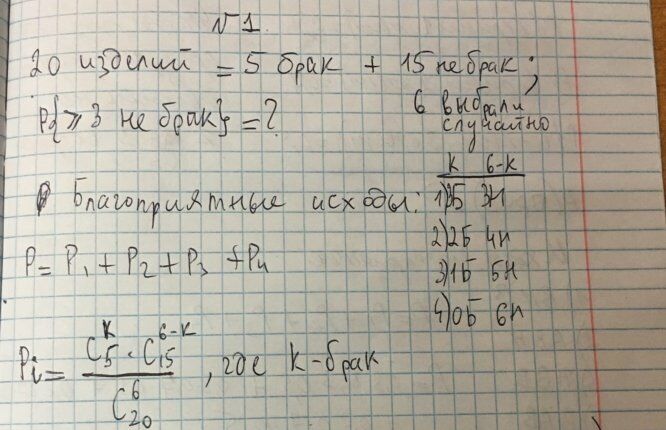 №1.
20 изделий = 5 брак + 15 не брак;
6 выбрали
случайно
P{⩾ 3 не брак} = ?
Благоприятные исходы:
K 6-K
1) 3Б 3Н
2) 2Б 4Н
3) 1Б 5Н
4) 0Б 6Н
P = P₁ + P₂ + P₃ + P₄
Pᵢ = (C₅ᴷ · C₁₅⁶⁻ᴷ) / C₂₀⁶, где K - брак